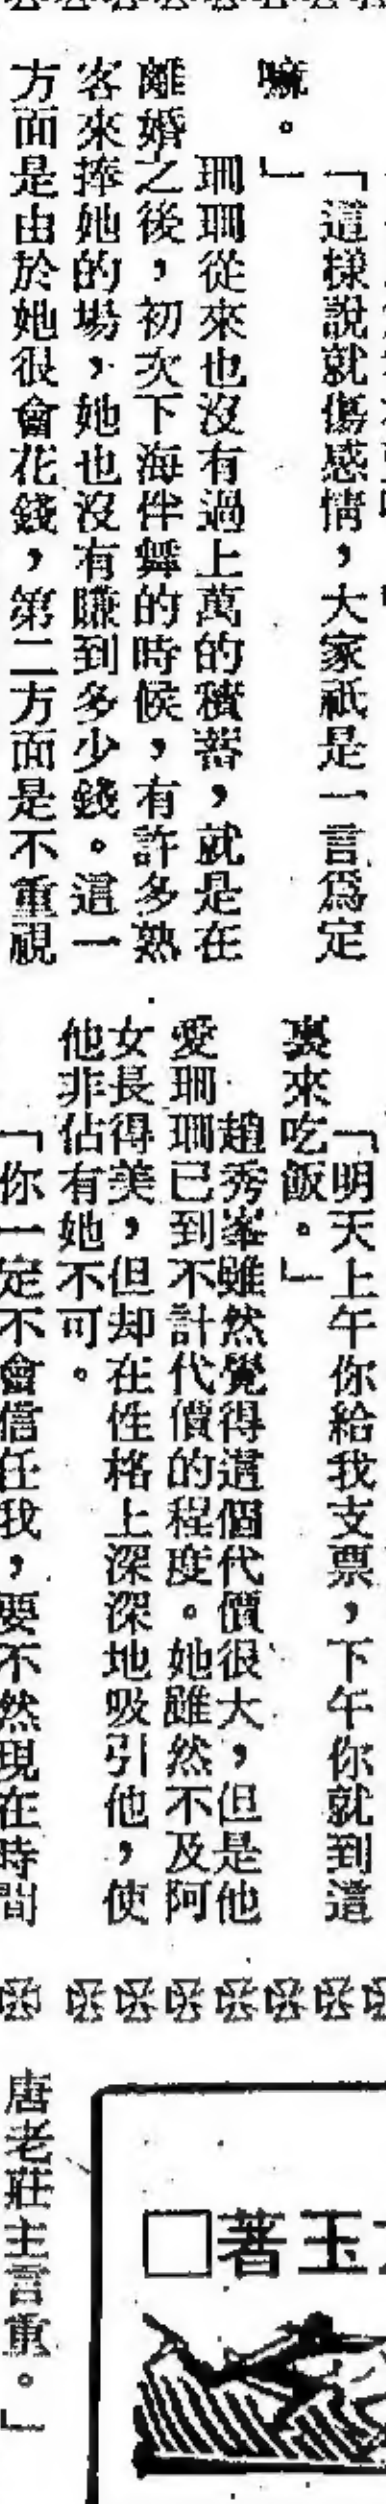 「這樣說就傷感情，大家祇是一言爲定
嘛。」
珊珊從來也沒有過上萬的積蓄，就是在
離婚之後，初次下海伴舞的時候，有許多熟
客來捧她的場，她也沒有賺到多少錢。這一
方面是由於她很會花錢，第二方面是不重視
「明天上午你給我支票，下午你就到這
裏來吃飯。」
趙秀峯雖然覺得這個代價很大，但是他
愛珊珊已到不計代價的程度。她雖然不及阿
女長得美，但却在性格上深深地吸引他，使
他非佔有她不可。
「你一定不會信任我，要不然現在時間
玉著□
唐老莊主言重。」